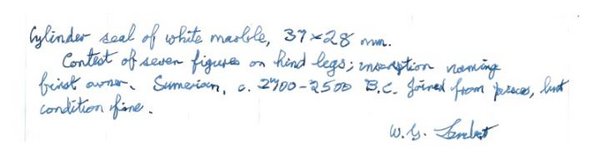 Cylinder seal of white marble, 37 × 28 mm.
Contest of seven figures on hind legs; inscription naming
first owner. Sumerian, c. 2700-2500 B.C. Joined from pieces, but
condition fine.
W. G. Lambert